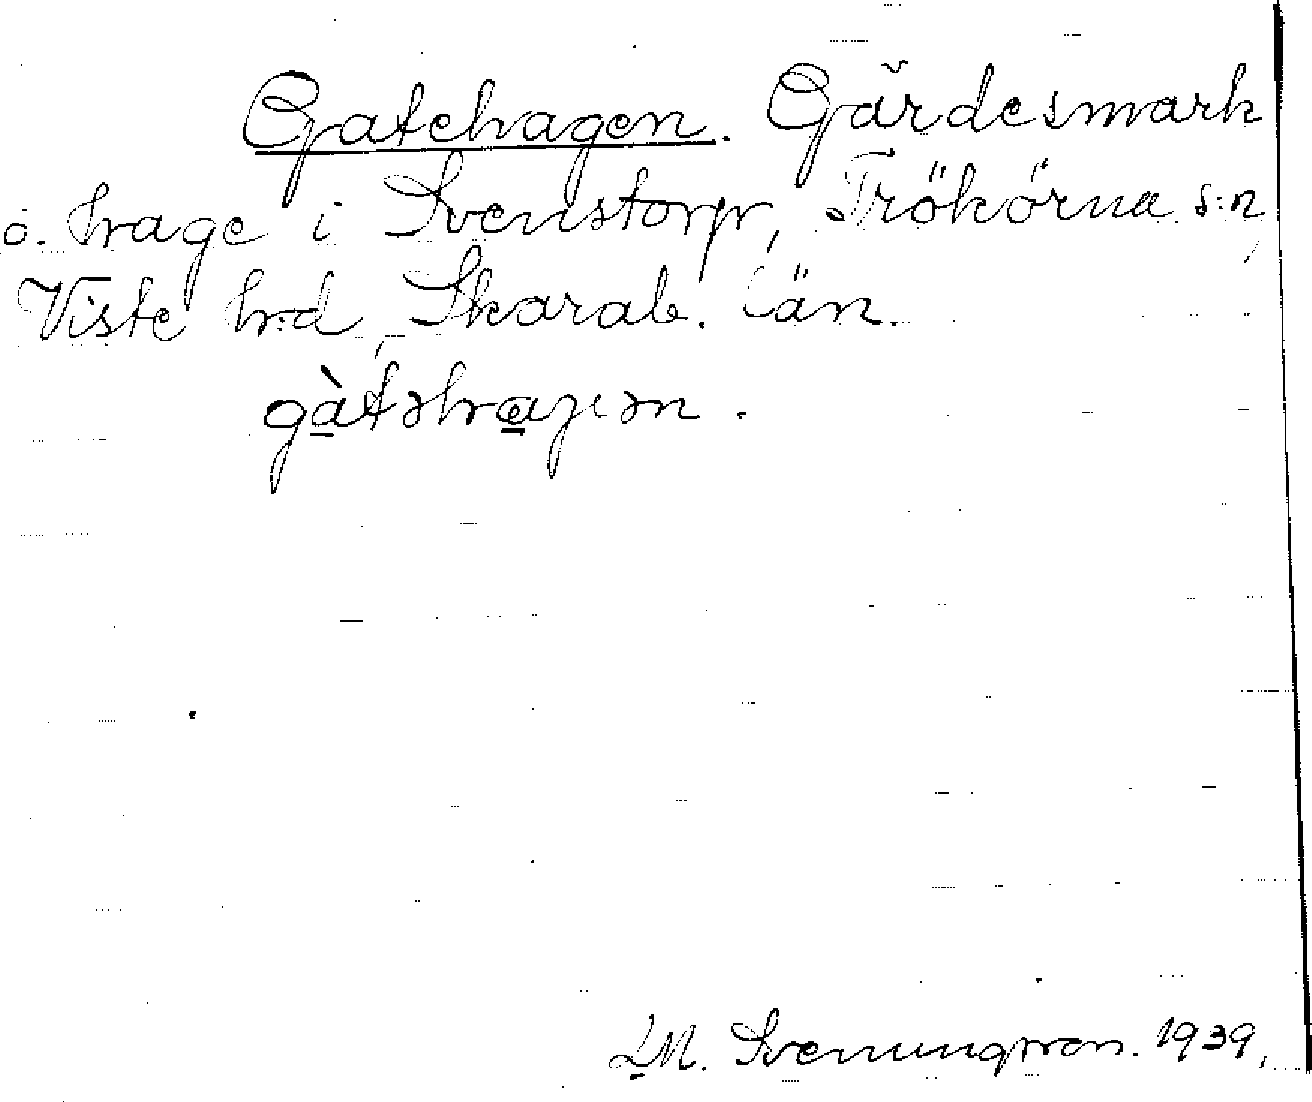 Gatehagen. Gärdesmark
o. hage i Svenstorp, Trökörna s:n,
Viste h:d, Skarab. län.
gàtəhaɡən.
M. Svenungson. 1939.